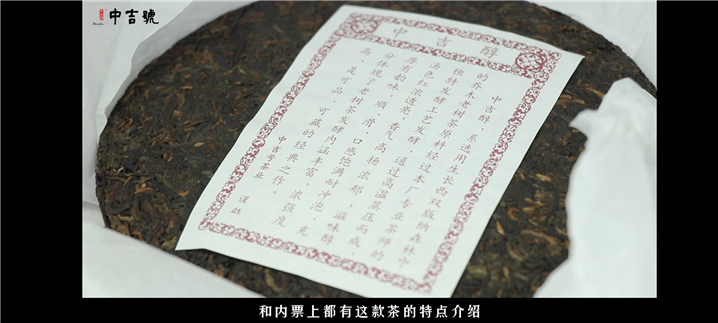 中吉號
中吉醇
中吉醇，系选用生长西双版纳森林中
的乔木老树茶原料经过本厂专业茶师的
独特发酵工艺发酵，通过高温蒸压而成，
汤色红浓透亮，香气高扬浓郁，滋味醇
厚有韵味，顺、滑，口感饱满耐冲泡，充
分体现了老树茶发酵内涵丰富，浓强度
高，是可品、可藏的经典之作。
中吉号茶业
谨跋
和内票上都有这款茶的特点介绍